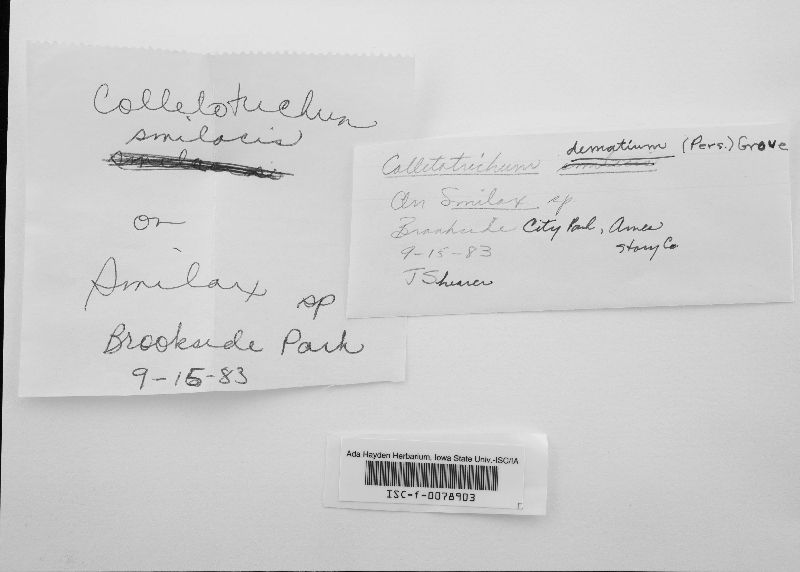 Colletotrichum
smilacis
on
Smilax sp
Brookside Park
9-15-83
Colletotrichum dematium (Pers.) Grove
On Smilax sp
Brookside City Park, Ames
Story Co
9-15-83
J Shearer
Ada Hayden Herbarium, Iowa State Univ.-ISC/IA
ISC-f-0078903